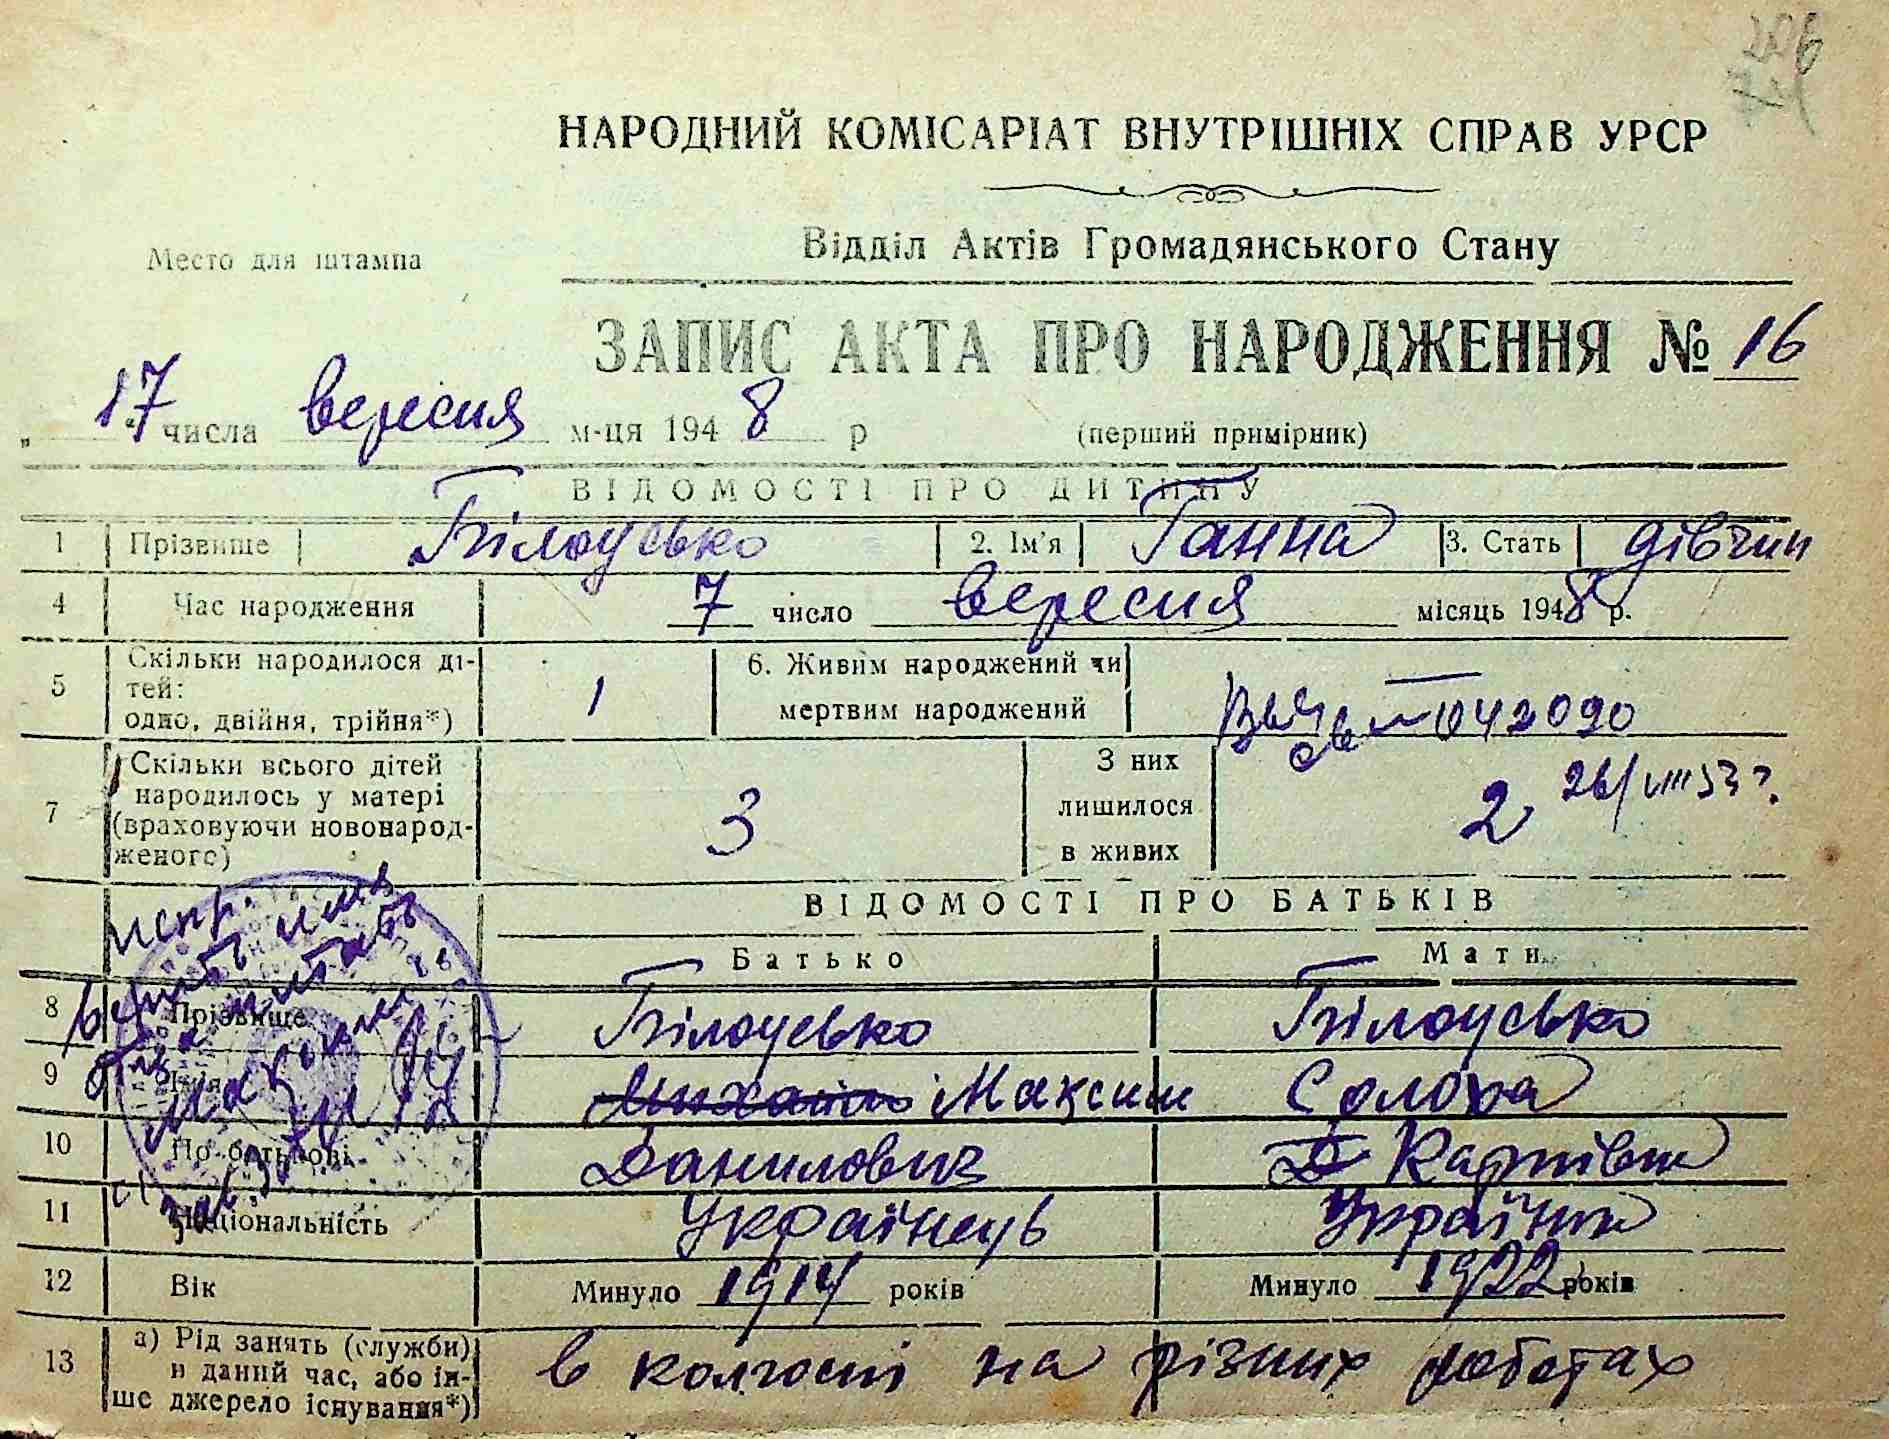 НАРОДНИЙ КОМІСАРІАТ ВНУТРІШНІХ СПРАВ УРСР
Место для штампа
Відділ Актів Громадянського Стану
ЗАПИС АКТА ПРО НАРОДЖЕННЯ № 16
„ 17 " числа вересня м-ця 194 8 р (перший примірник)
ВІДОМОСТІ ПРО ДИТИНУ
1 Прізвище Білоусько 2. Ім'я Ганна 3. Стать дівчин
4 Час народження 7 число вересня місяць 1948 р.
5 Скільки народилося ді-
тей:
одно, двійня, трійня*)
1
6. Живим народжений чи
мертвим народжений
—
042090
7 Скільки всього дітей
народилось у матері
(враховуючи новонарод-
женого)
3
З них
лишилося
в живих
2
26/VIII 53 г.
ВІДОМОСТІ ПРО БАТЬКІВ
Батько Мати
8 Прізвище Білоусько Білоусько
9 Ім'я Михайло Максим Солоха
10 По батькові Данилович Д Карпівна
11 Національність Українець Українка
12 Вік Минуло 1914 років Минуло 1922 років
13 а) Рід занять (служби)
в даний час, або ін-
ше джерело існування*)
в колгоспі на різних роботах